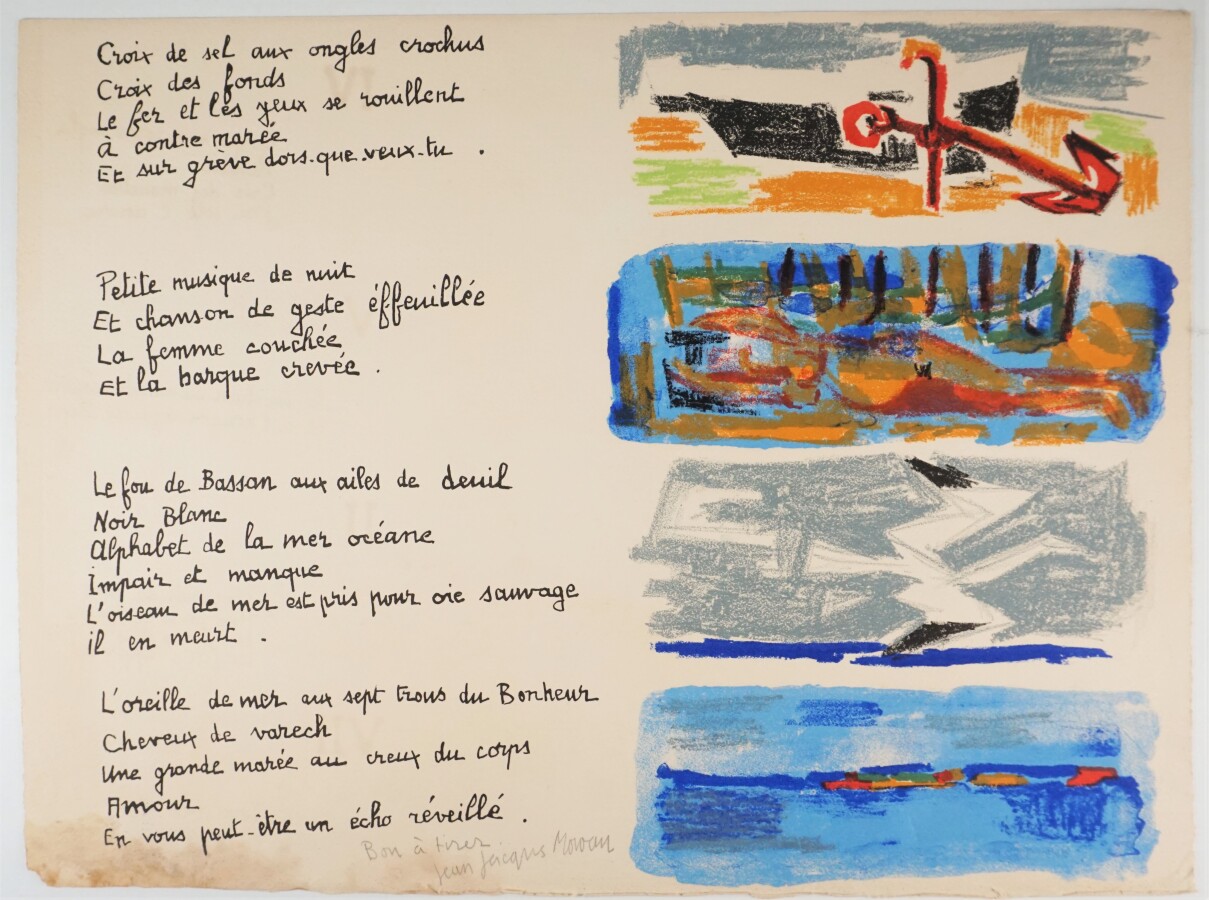 Croix de sel aux ongles crochus
Croix des fonds
Le fer et les yeux se rouillent
à contre marée
Et sur grève dors-que-veux-tu .
Petite musique de nuit
Et chanson de geste éffeuillée
La femme couchée
Et la barque crevée .
Le fou de Bassan aux ailes de deuil
Noir Blanc
Alphabet de la mer océane
Impair et manque
L'oiseau de mer est pris pour oie sauvage
il en meurt .
L'oreille de mer aux sept trous du Bonheur
Cheveux de varech
Une grande marée au creux du corps
Amour
En vous peut-être un écho réveillé .
Bon à tirer
Jean Jacques Morvan